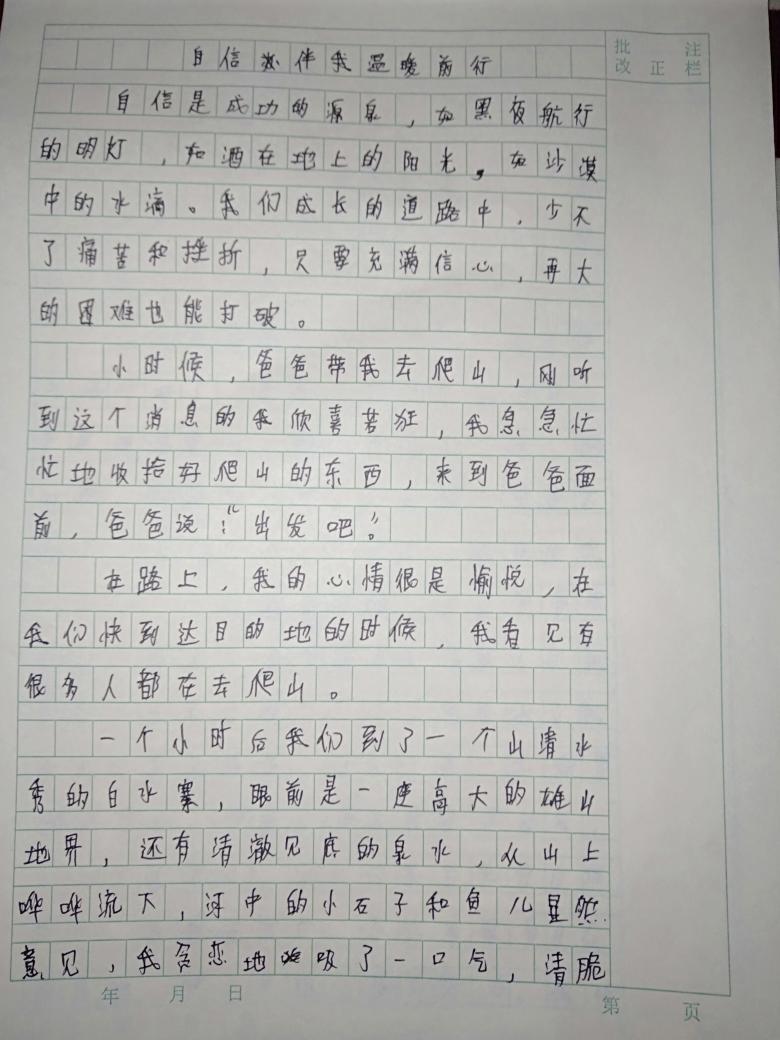 自信伴我温暖前行
批注
改正栏
自信是成功的源泉，如黑夜航行
的明灯，如洒在地上的阳光，如沙漠
中的水滴。我们成长的道路中，少不
了痛苦和挫折，只要充满信心，再大
的困难也能打破。
小时候，爸爸带我去爬山，刚听
到这个消息的我欣喜若狂，我急急忙
忙地收拾好爬山的东西，来到爸爸面
前，爸爸说：“出发吧”。
在路上，我的心情很是愉悦，在
我们快到达目的地的时候，我看见有
很多人都在去爬山。
一个小时后我们到了一个山清水
秀的白水寨，眼前是一座高大的雄山
地界，还有清澈见底的泉水，从山上
哗哗流下，河中的小石子和鱼儿显然
意见，我贪恋地吸了一口气，清脆
年 月 日
第 页